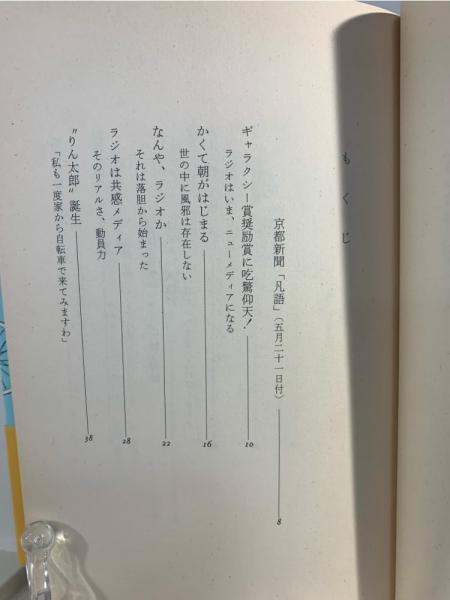 もくじ
京都新聞「凡語」(五月二十一日付) 8
ギャラクシー賞奨励賞に吃驚仰天! 10
ラジオはいま、ニューメディアになる
かくて朝がはじまる 16
世の中に風邪は存在しない
なんや、ラジオか 22
それは落胆から始まった
ラジオは共感メディア 28
そのリアルさ、動員力
〝りん太郎〟誕生 38
「私も一度家から自転車で来てみますわ」